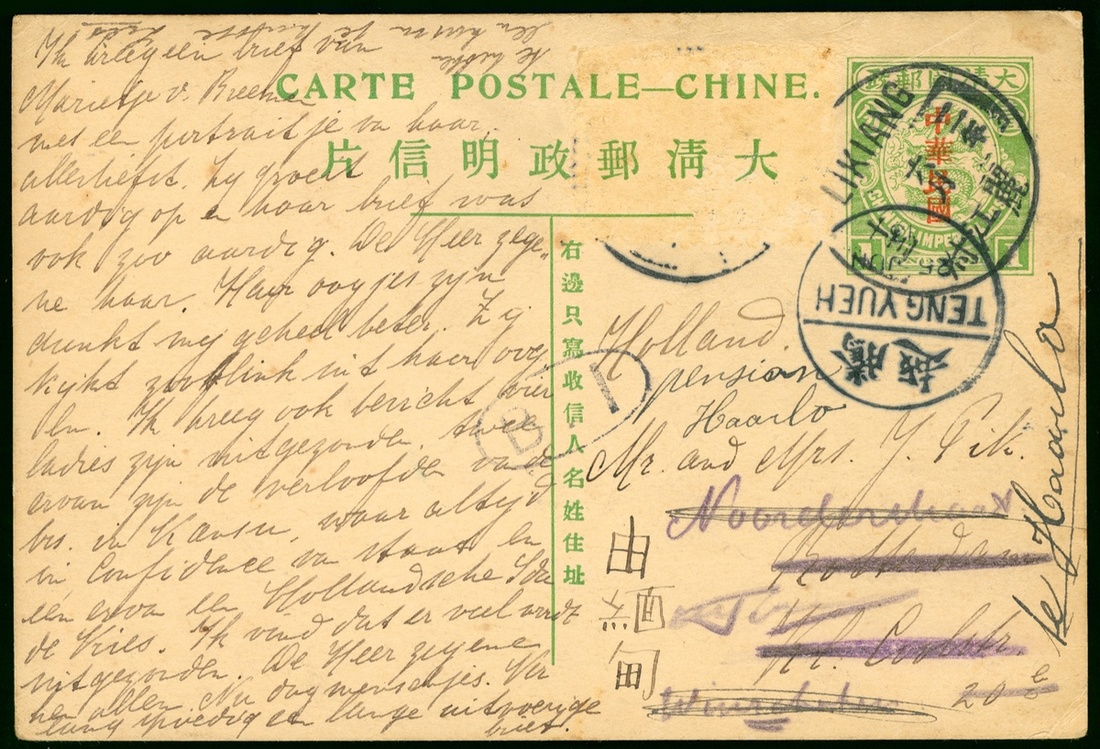 Ik kreeg een brief van
Marietje v. Breemen
met een portraitje van haar,
allerliefst. Zy groeit
aardig op en haar brief was
ook zoo aardig. De Heer zege-
ne haar. Haar oogjes zyn
dunkt my geheel beter. Zy
kykt zoo flink uit haar oog
en. Ik kreeg ook bericht vier
ladies zyn uitgezonden, twee
ervan zyn de verloofden van de
brs. in Kansu, waar altyd
in Confidence van staat en
een ervan een Hollandsche Ida
de Vries. Ik vind dat er veel wordt
uitgezonden. De Heer zegene
hen allen. Nu dag menschjes. Ver
lang spoedig een lange uitvoerige
brief.
CARTE POSTALE—CHINE.
片信明政郵清大
右邊只寫收信人名姓住址
大清國郵政
中華民國
CHINESE IMPERIAL
1
LIKIANG
麗江
25 JUN
TENGYUEH
騰越
B
Holland.
pension
Haarlo
Mr. and Mrs. J. Pik.
Noorderstraat
Rotterdam
Winschoten
20
te Haarlo
由緬甸